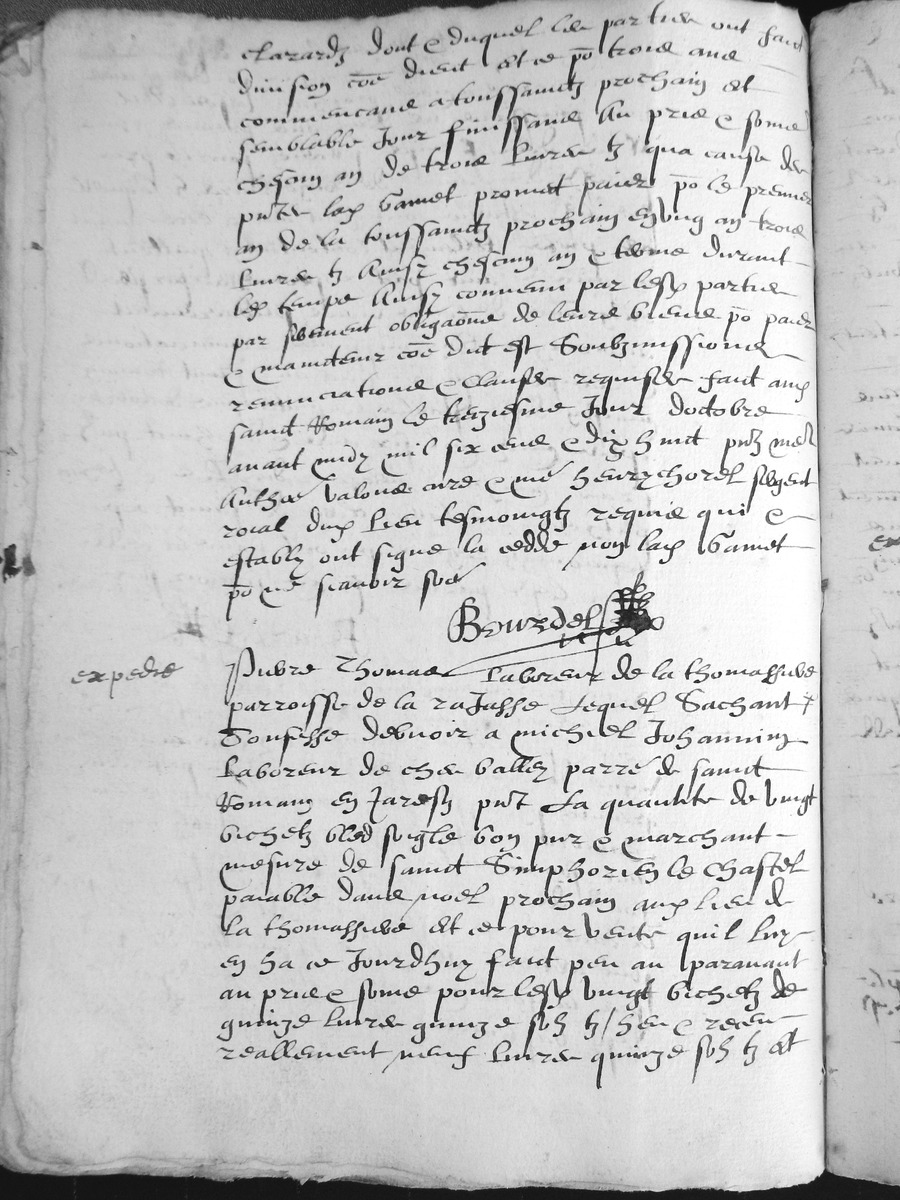 clarardz dont & duquel les parties ont faict
division coe dient et ce po trois ans
commencans a toussainctz prochain et
semblable jour finissans au pris & some
chescun an de trois livres tz qua cause des
pntes lad Gamet promect paier po le premier
an de la toussainctz prochain en ung an trois
livres tz ainsy chescun an & terme durant
led temps ainsy convenu par lesd parties
par serement obligaone de leurs biens po paier
& maintenir coe dict est Soubzmissions
renunciations & clauses requises faict aud
sainct Romain le treziesme Jour doctobre
avant midy mil six cens & dix huict pntz mes
Anthoe valous cure & me henry chorel sergent
roial dud lieu tesmoingtz requis qui &
establyz ont signe la cedde non lad Gamet
po ne scavoir soe
Bourdel
expedie
Pierre Thomas Laboreur de la thomassiere
parroisse de la rajasse Lequel Sachant
Confesse debvoir a michiel Johannin
Laboreur de ches vallez parre de sainct
Romain en Jaresz pnt La quantite de vingt
bichetz bled soigle bon pur & marchant
mesure de sainct Simphorien le Chastel
paiable dans noel prochain aud lieu de
la thomassiere et ce pour vente quil luy
en ha ce Jourdhuy faict peu au paravant
au pris & some pour lesd vingt bichetz de
quinze livres quinze solz tz / heu & receu
reallement neuf livres quinze solz tz et